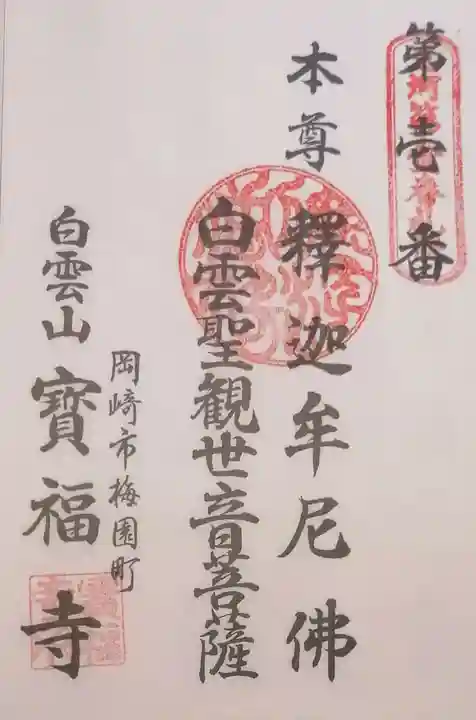 第壱番
本尊
釋迦牟尼佛
白雲聖観世音菩薩
岡崎市梅園町
白雲山 寳福寺